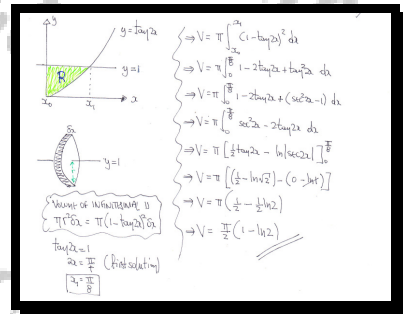 y
y = tan2x
y = 1
R
x₀
x₁
x
δx
y = 1
VOLUME OF INFINITESIMAL IS
πr²δx = π(1 - tan2x)²δx
tan2x = 1
2x = π/4 (first solution)
x₁ = π/8
⇒ V = π ∫_{x₀}^{x₁} (1 - tan2x)² dx
⇒ V = π ∫_0^{π/8} 1 - 2tan2x + tan²2x dx
⇒ V = π ∫_0^{π/8} 1 - 2tan2x + (sec²2x - 1) dx
⇒ V = π ∫_0^{π/8} sec²2x - 2tan2x dx
⇒ V = π [½tan2x - ln|sec2x|]_0^{π/8}
⇒ V = π [(½ - ln√2) - (0 - ln1)]
⇒ V = π (½ - ½ln2)
⇒ V = π/2 (1 - ln2)